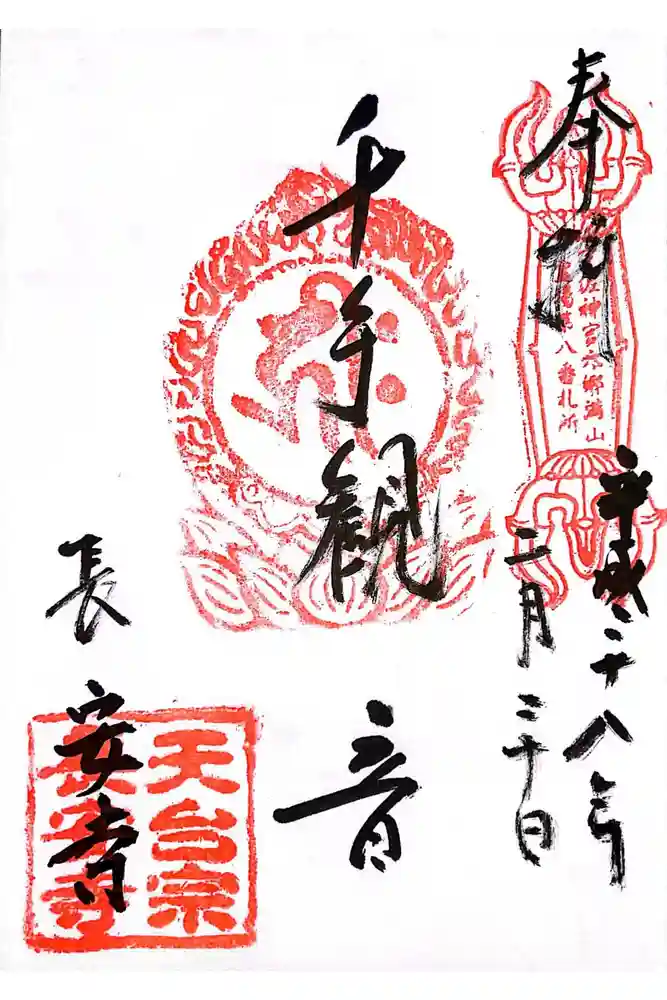 奉拝
佐神宮六郷満山
八番札所
平成二十八年
三月三十日
千手観音
長安寺
天台宗
長安寺